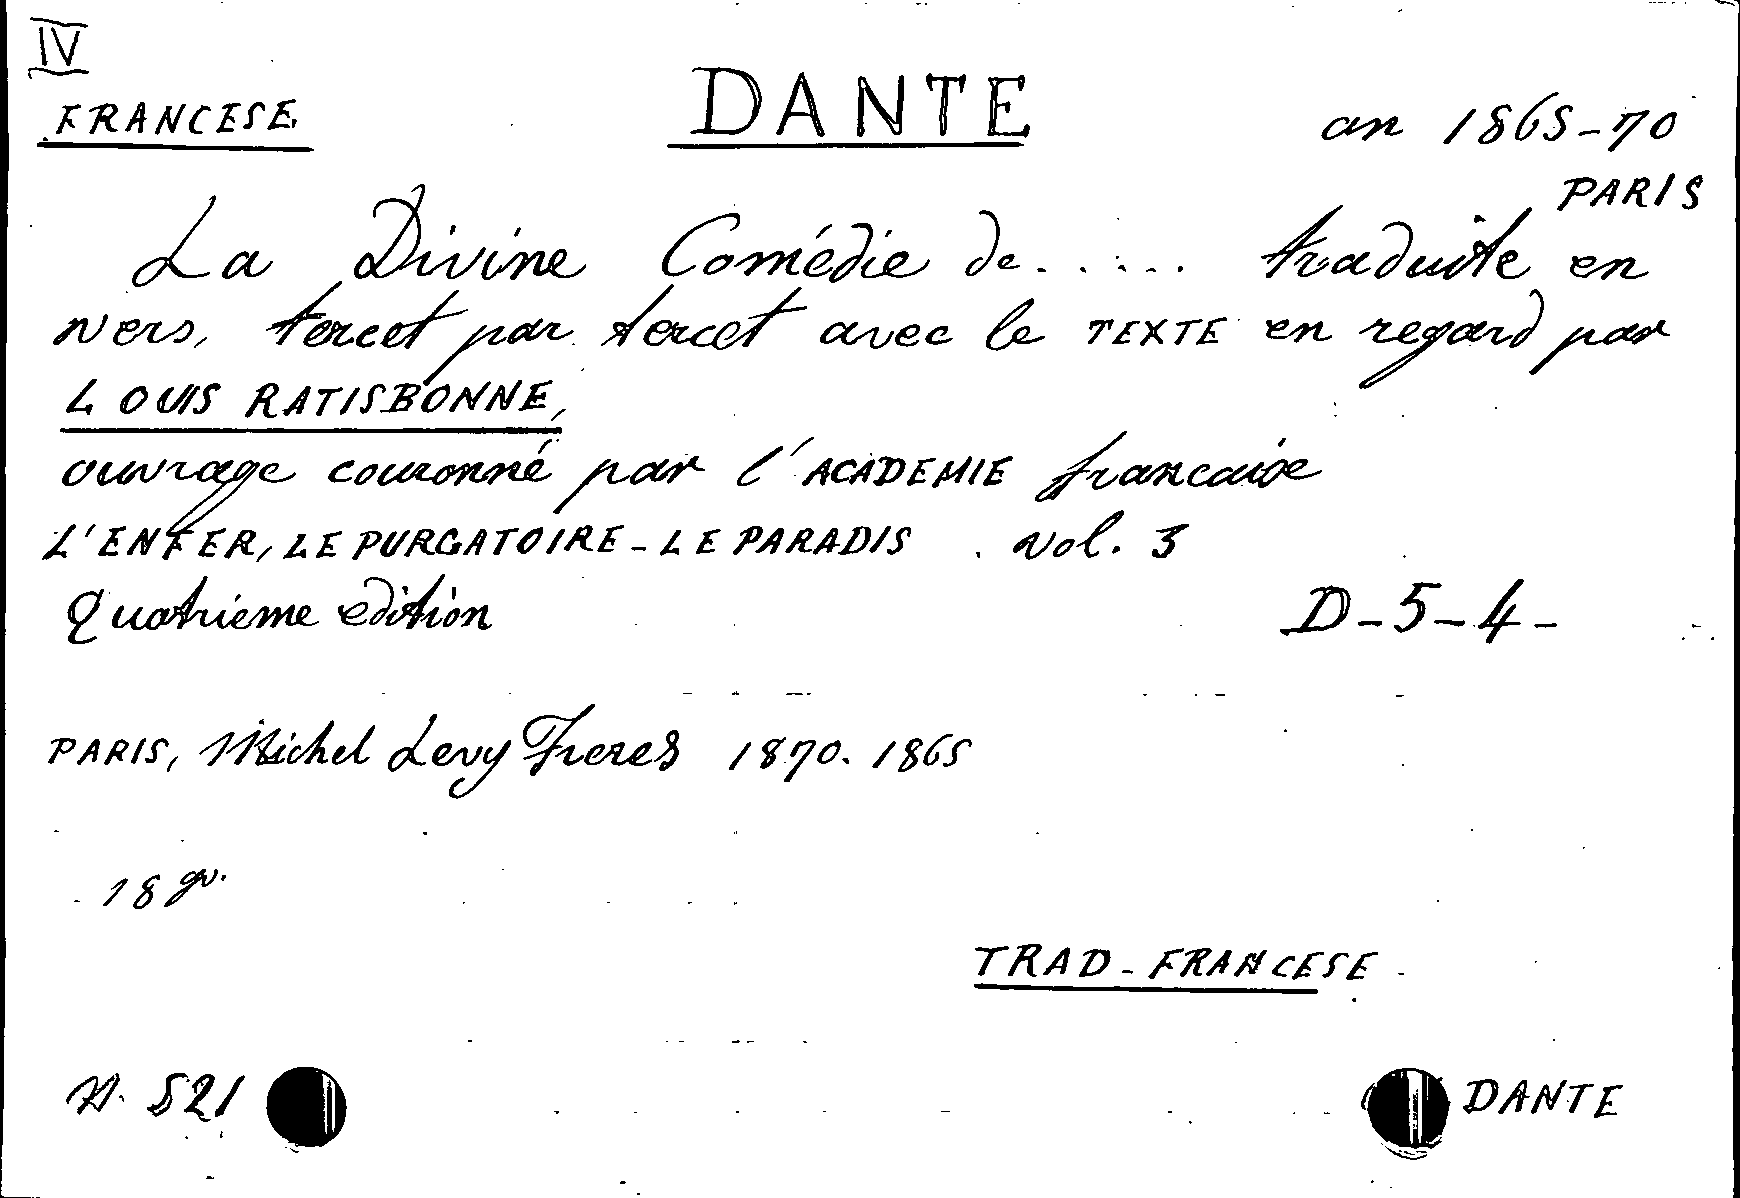 IV
FRANCESE
DANTE
an 1865-70
PARIS
La Divine Comédie de...... traduite en
vers, tercet par tercet avec le TEXTE en regard par
LOUIS RATISBONNE,
ouvrage couronné par l'ACADEMIE francaise
L'ENFER, LE PURGATOIRE - LE PARADIS . vol. 3
Quatrieme edition
D-5-4-
PARIS, Michel Levy Freres 1870. 1865
18
TRAD-FRANCESE
N. 521
DANTE